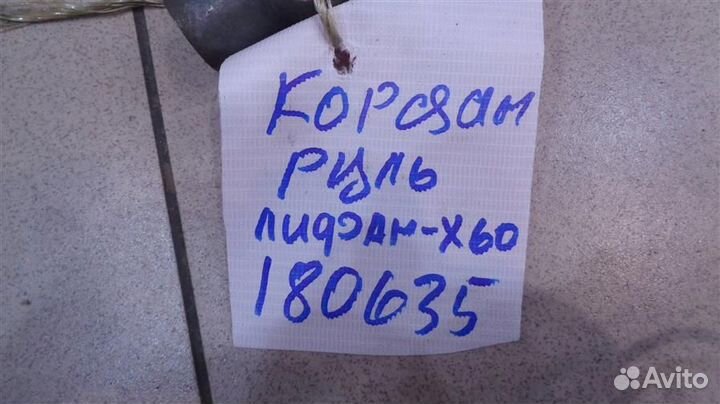 Кордан
руль
лифан-х60
180635
Avito